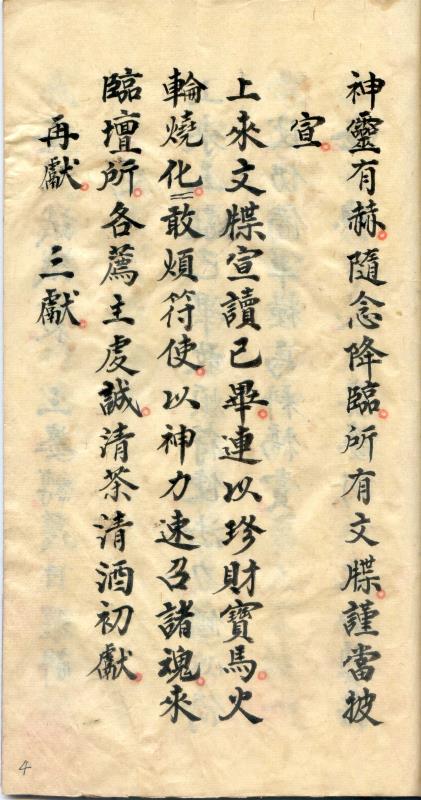 神靈有赫。隨念降臨。所有文牒。謹當披
宣。
上來文牒宣讀已畢。連以珍財寶馬。火
輪燒化。〻敢煩符使。以神力速召諸魂。來
臨壇所。各薦主虔誠。清茶清酒初獻。
再獻。三獻。
4